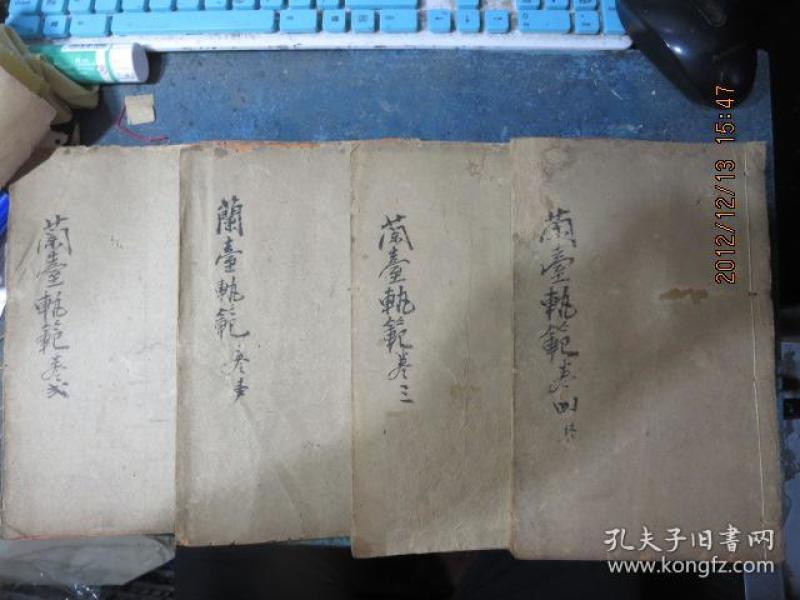 蘭臺軌範 卷弍
蘭臺軌範 卷壹
蘭臺軌範 卷三
蘭臺軌範 卷四 終
2012/12/13 15:47
孔夫子旧书网
www.kongfz.com